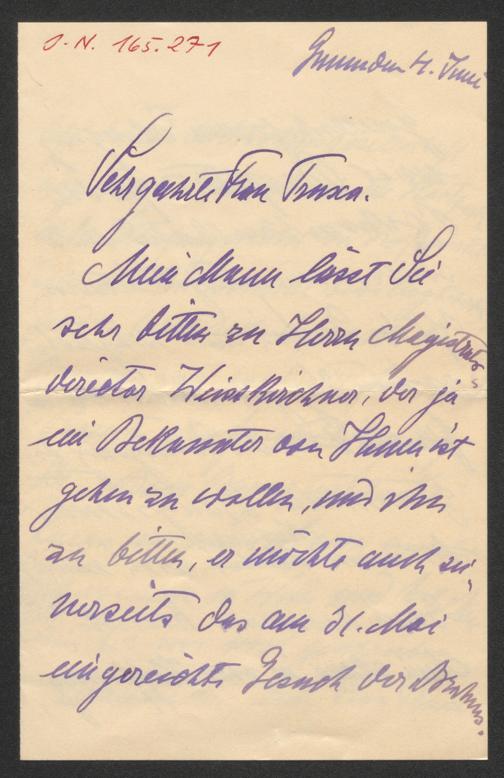 J.-N. 165.271
Gmunden 4. Juni
Sehrgeehrte Frau Truxa.
Mein Mann lässt Sie
sehr bitten zu Herrn Magistrats-
director Weisskirchner, der ja
ein Bekannter von Ihnen ist
gehen zu wollen, und ihn
zu bitten, er möchte auch sei-
nerseits das am 31. Mai
eingereichte Gesuch der Brahms-